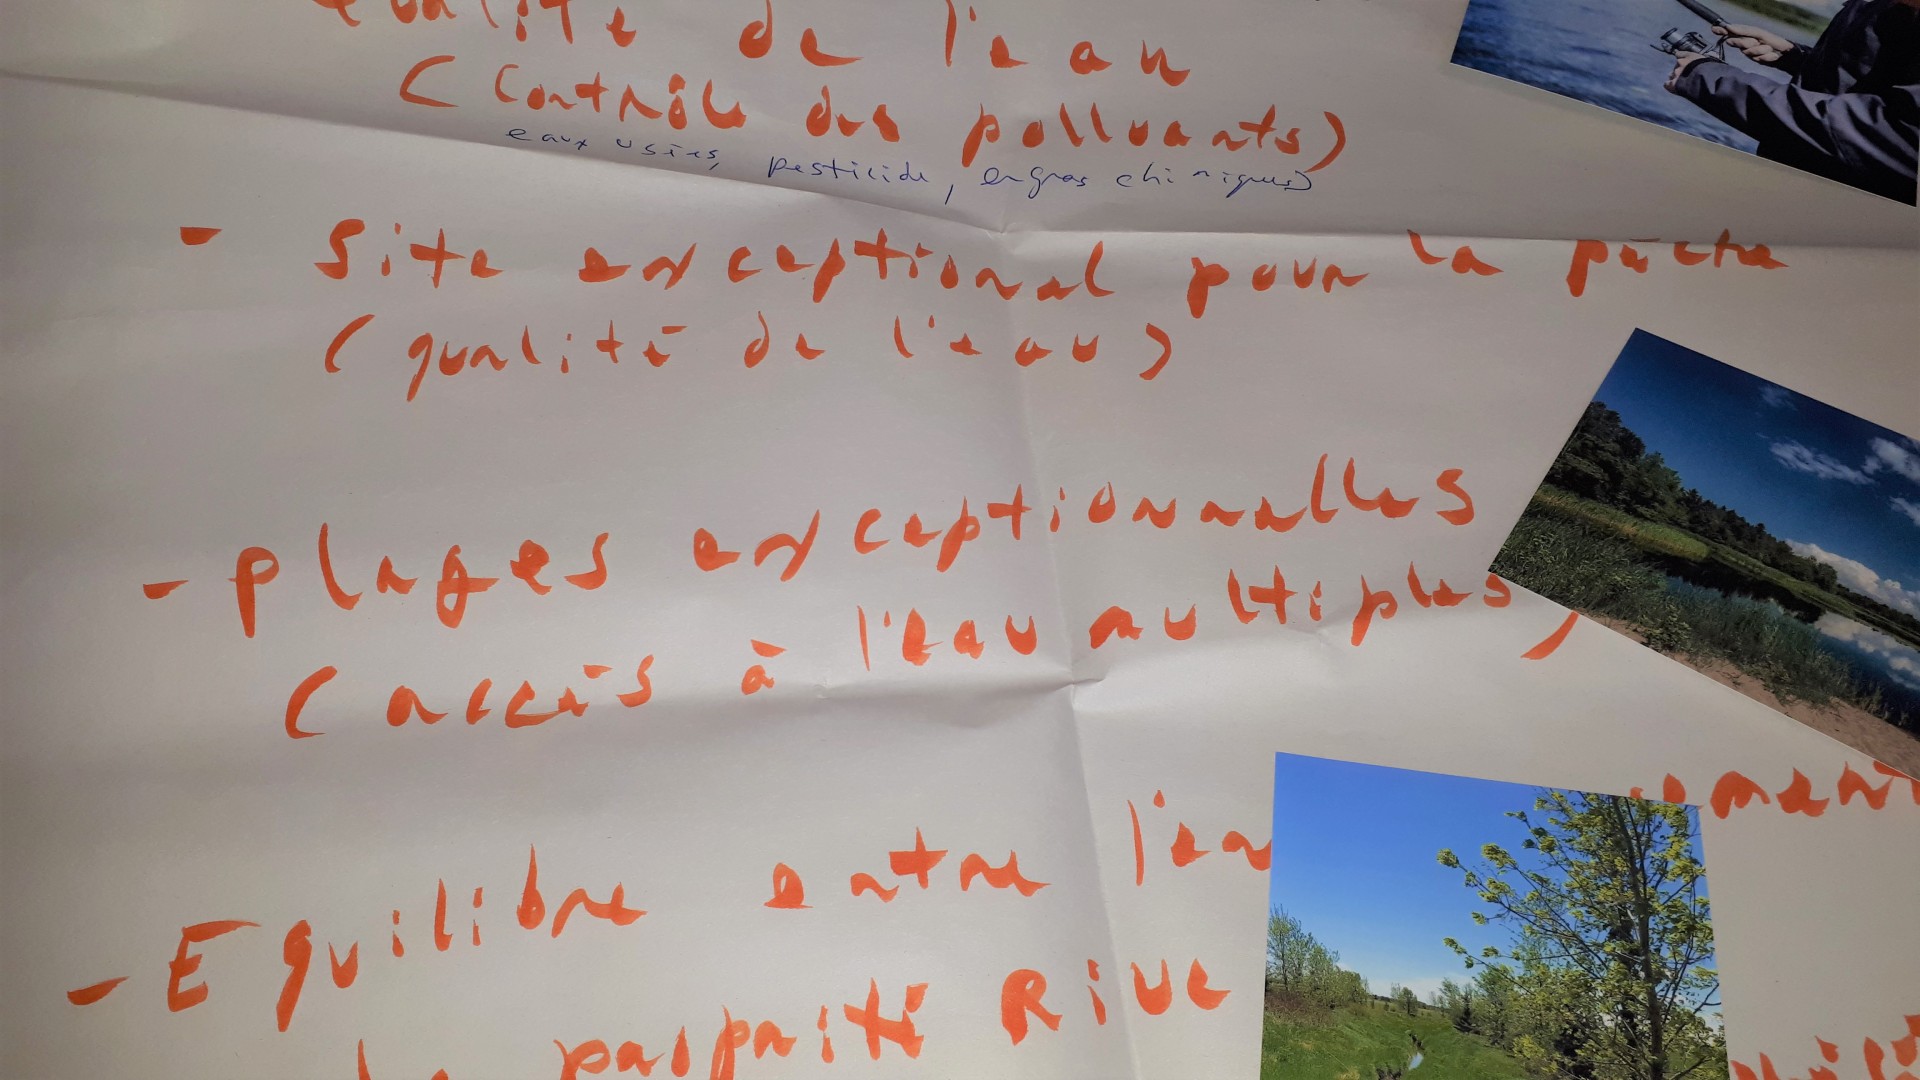 qualité de l'eau
(Contrôle des polluants)
eaux usées, pesticide, engras chimiques)
- Site exceptional pour la pêche
(qualité de l'eau)
- plages exceptionnelles
(accès à l'eau multiples)
- Equilibre entre l'eau
proprité Rive